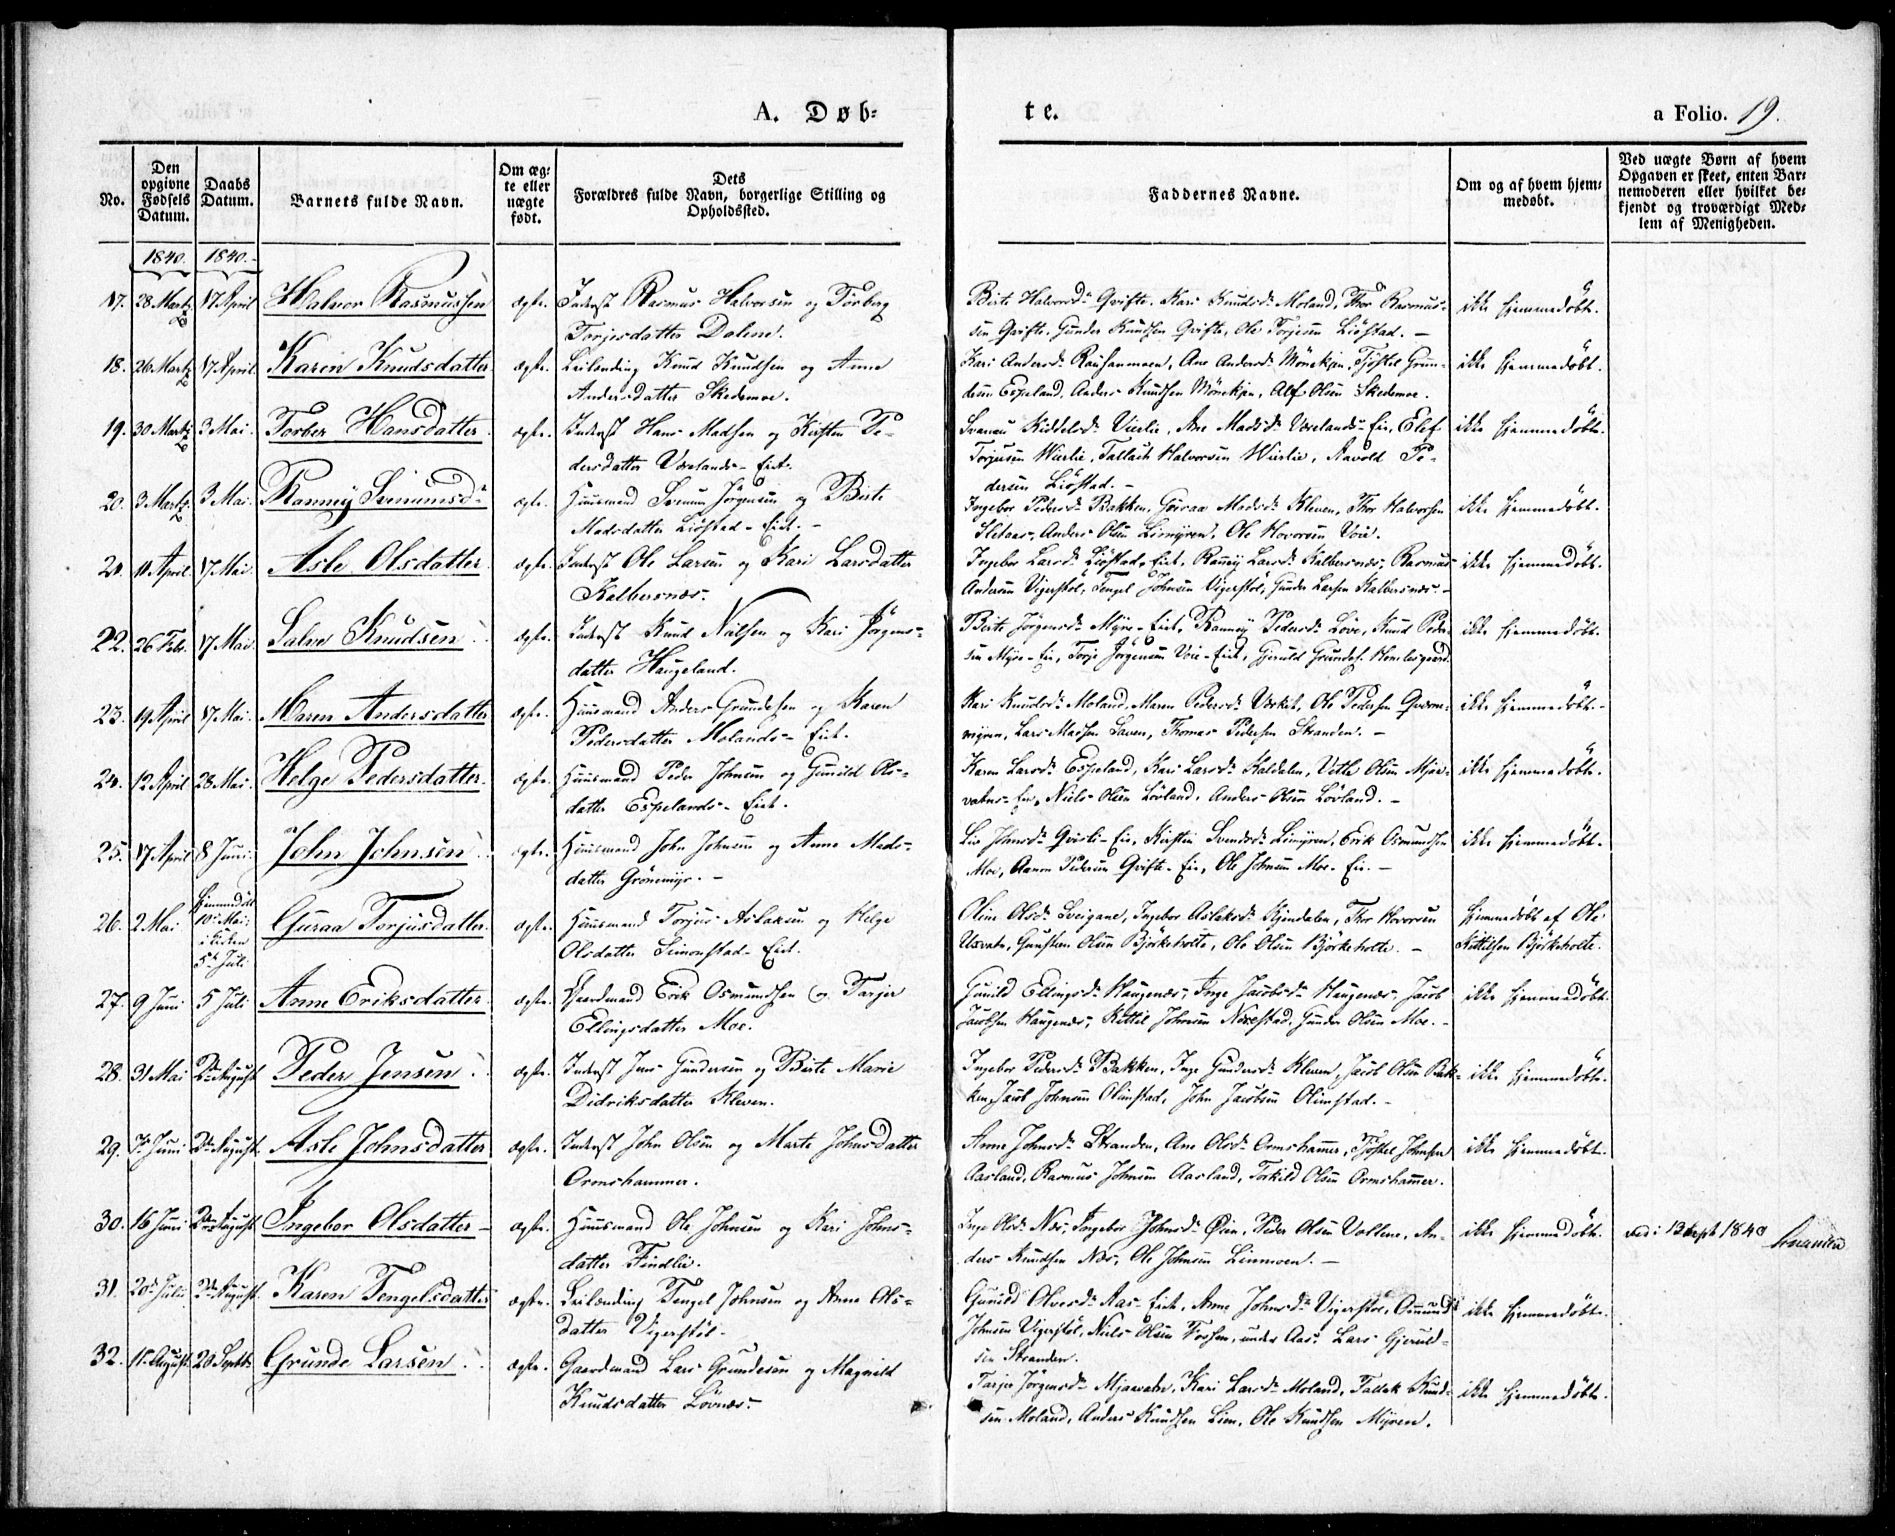 A. Døb-
te.
a Folio. 19.
No.
Den opgivne Fødsels Datum.
Daabs Datum.
Barnets fulde Navn.
Om ægte eller uægte født.
Dets Forældres fulde Navn, borgerlige Stilling og Opholdssted.
Faddernes Navne.
Om og af hvem hjemmedøbt.
Ved uægte Børn af hvem Opgaven er skeet, enten Barnemoderen eller hvilket bekjendt og troværdigt Medlem af Menigheden.
1840. 1840.
17. 28 Marts 17 April Halvor Rasmussen ægte. Inderst Rasmus Halvorsen og Torberg
Torjesdatter Dalene.
Birte Halvorsd. Qvifte, Kari Knudsd. Moland, Thor Rasmus-
sen Qvifte, Gunder Knudsen Qvifte, Ole Torjesen Liøstad. –
ikke hjemmedøbt.
18. 26 Marts 17 April. Karen Knudsdatter ægte. Leilending Knud Knudsen og Anne
Andersdatter Skedemoe.
Kari Andersd. Anders Knudsen Alf Olsen Skedemoe.
ikke hjemmedøbt.
19. 30 Marts 3 Mai. Torber Hansdatter. ægte. Inderst Hans Madsen og Kirsten Pe-
dersdatter Værlands-Eiet.
Torjusen Tallach Halvorsen Aavold Pe-
dersen Liøstad. –
ikke hjemmedøbt.
20. 3 Marts. 3 Mai. Ranney ægte. Huusmand Jørgensen og Birte
Madsdatter Liøstad-Eiet. –
Ingebor Pedersd. Bakken, Guraa Madsd. Kleven, Thor Halvorsen
Anders Olsen Limyren, Ole Hovorsen Voie.
ikke hjemmedøbt.
21. 11 April. 17 Mai Asle Olsdatter. ægte. Inderst Ole Larsen og Kari Larsdatter
Kalbersnæs.
Ingebor Larsd. Liøstad-Eiet, Ranney Larsd. Kalbersnæs, Rasmus
Andersen Vigerstøl, Tengel Johnsen Vigerstøl, Gunder Larsen Kalbersnæs. –
ikke hjemmedøbt.
22. 26 Feb. 17 Mai Salve Knudsen ægte. Inderst Knud Nielsen og Kari Jørgens-
datter Haugeland.
Birte Jørgensd. Myre-Eiet, Ranney Pedersd. Løve, Knud Peder-
sen Myre-Eie, Torje Jørgensen Voie-Eiet, Gjeruld
ikke hjemmedøbt.
23. 19 April 17 Mai. Maren Andersdatter ægte. Huusmand Anders Grundesen og Karen
Pedersdatter Molands-Eiet.
Kari Knudsd. Moland, Maren Pedersd. Ole Pedersen Qværn-
myren, Lars Madsen Laven, Thomas Pedersen Stranden. –
ikke hjemmedøbt. –
24. 12 April 28 Mai. Helge Pedersdatter. ægte. Huusmand Peder Johnsen og Gunild Ols-
datter Espelands-Eiet.
Karen Larsd. Espeland, Kari Larsd. Kaldalen, Vetle Olsen Mjaa-
vatns-Eie, Niels Olsen Løvland, Anders Olsen Løvland. –
ikke hjemmedøbt.
25. 17 April 8 Juni. John Johnsen ægte. Huusmand John Johnsen og Anne Mads-
datter Grønemyr. –
Liv Johnsd. Qvisli-Eie, Kirsten Svendsd. Limyren, Erik Osmundsen
Moe, Aanon Pedersen Qvifte-Eie, Ole Johnsen Moe-Eie. –
ikke hjemmedøbt.
26. 2 Mai Hjemmedøbt
10 Mai;
i Kirken
5te Juli Guraa Torjusdatter. ægte. Huusmand Torjus Aslaksen og Helge
Olsdatter Simonstad-Eiet.
Oline Olsd. Sveigane, Ingebor Aslaksd. Thor Hovorsen
Uxvatn, Gunsten Olsen Bjørkeholte, Ole Olsen Bjørkeholte. –
Hjemmedøbt af Ole
Kittilsen Bjørkeholte.
27. 9 Juni 5 Juli Anne Eriksdatter. ægte. Gaardmand Erik Osmundsen og Tarjer
Ellingsdatter Moe.
Gunild Ellingsd. Haugenæs, Inge Jacobsd. Haugenæs, Jacob
Jacobsen Haugenæs, Kittil Johnsen Næxestad, Gunder Olsen Moe. –
ikke hjemmedøbt.
28. 31 Mai 2den August Peder Jensen ægte. Inderst Jens Gundersen og Birte Marie
Didriksdatter Kleven.
Ingebor Pedersd. Bakken, Inge Gundersd. Kleven, Jacob Olsen Bak-
ken, Jacob Johnsen Olimstad, John Jacobsen Olimstad. –
ikke hjemmedøbt.
29. 7 Juni. 2den August. Asle Johnsdatter ægte. Inderst John Olsen og Marte Johnsdatter
Ormshammer.
Anne Johnsd. Stranden, Ane Olsd. Ormshammer, Tjøstel Johnsen
Aasland, Rasmus Johnsen Aasland, Torkild Olsen Ormshammer.
ikke hjemmedøbt.
30. 16 Juni 2den August Ingebor Olsdatter – ægte. Huusmand Ole Johnsen og Kari Johns-
datter Findlie.
Inge Olsd. Næs, Ingebor Johnsd. Øien, Peder Olsen Vollene, An-
ders Knudsen Næs, Ole Johnsen Linmoen. –
ikke hjemmedøbt. 13 Sept 1840
31. 20 Juli 2den August. Karen Tengelsdatter ægte. Leilending Tengel Johnsen og Anne Ols-
datter Vigerstøl.
Gunild Olvesd. Aas-Eiet, Anne Johnsd. Vigerstøl, Osmund
Johnsen Vigerstøl, Niels Olsen Fossen, under Aas, Lars Gjeruld-
sen Stranden.
ikke hjemmedøbt.
32. 11 August. 20 Septbr. Grunde Larsen ægte. Gaardmand Lars Grundesen og Magnild
Knudsdatter Løvnæs.
Tarjer Jørgensd. Mjaavatn, Kari Larsd. Moland, Tallak Knud-
sen Moland, Anders Knudsen Lien, Ole Knudsen Myren.
ikke hjemmedøbt.